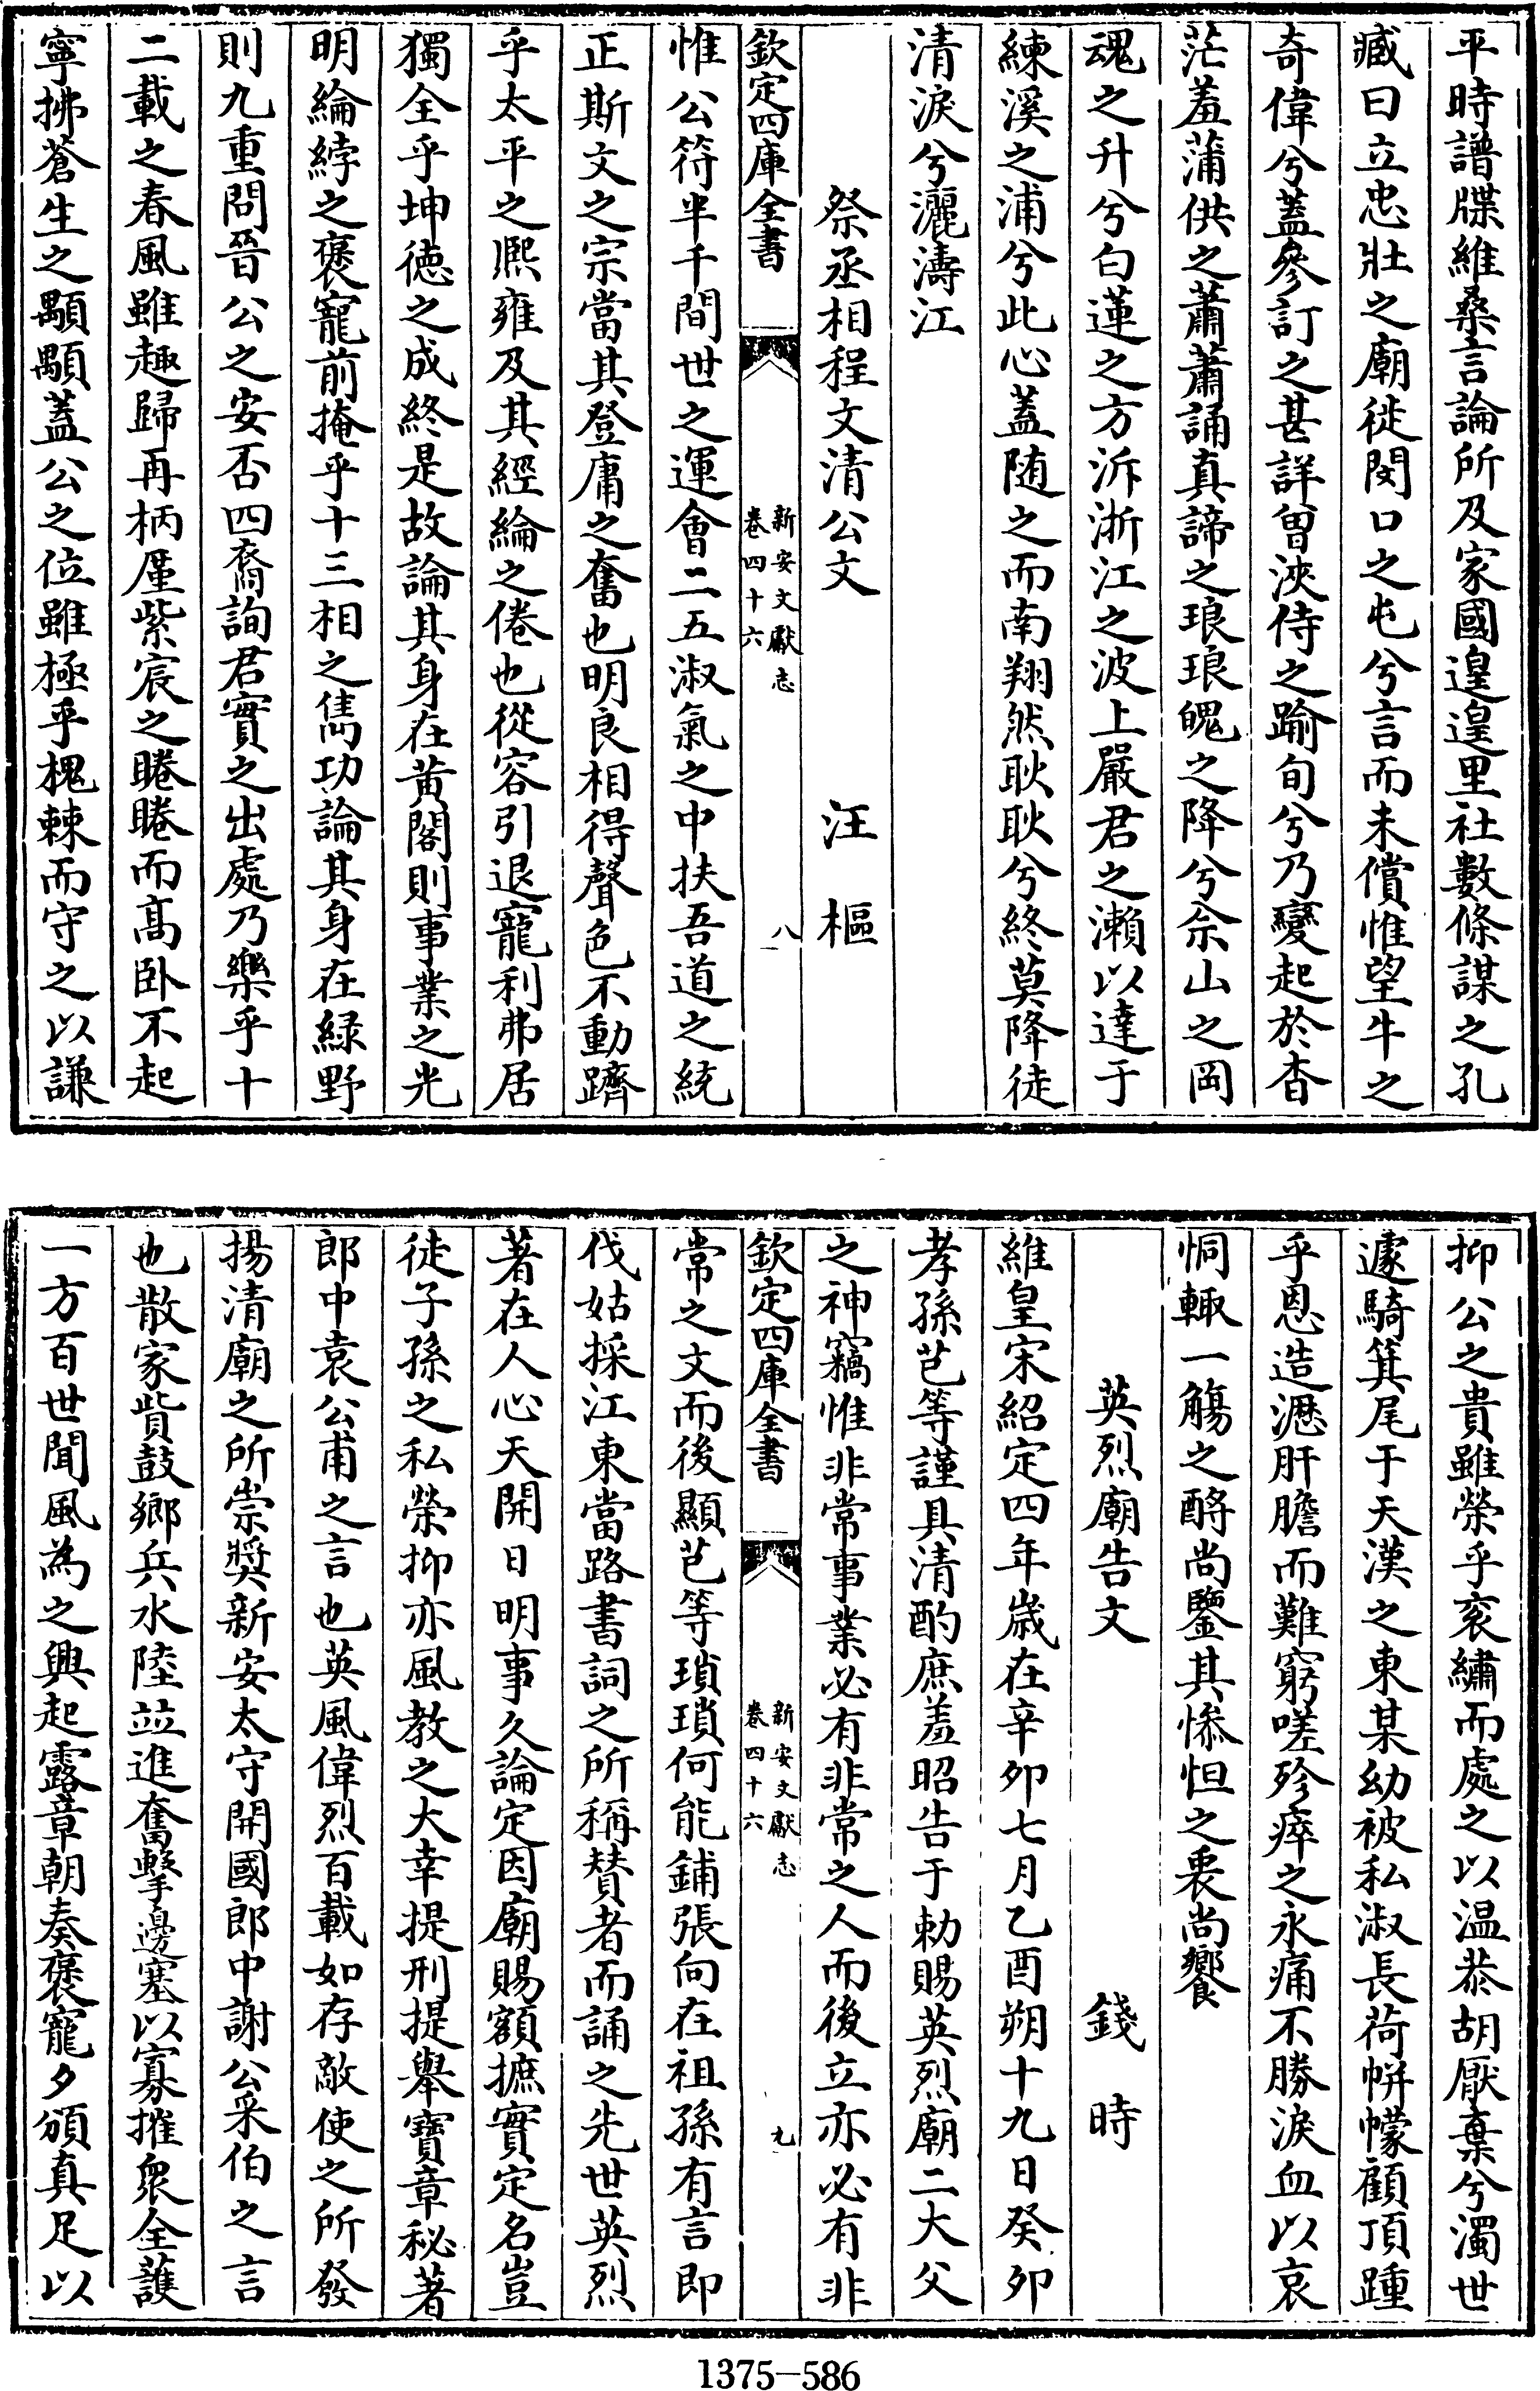 平時譜牒維桑言論所及家國遑遑里社數條謀之孔
臧曰立忠壯之廟徙閔口之屯兮言而未償惟望牛之
奇偉兮蓋參訂之甚詳曽浹侍之踰旬兮乃變起於杳
茫羞蒲供之蕭蕭誦真諦之琅琅魄之降兮佘山之岡
魂之升兮白蓮之方泝浙江之波上嚴君之瀨以達于
練溪之浦兮此心蓋随之而南翔然耿耿兮終莫降徒
清淚兮灑濤江
祭丞相程文清公文 汪樞
欽定四庫全書 新安文獻志 卷四十六 八
惟公符半千間世之運會二五淑氣之中扶吾道之統
正斯文之宗當其登庸之奮也明良相得聲色不動躋
乎太平之熈雍及其經綸之倦也從容引退寵利弗居
獨全乎坤徳之成終是故論其身在黄閣則事業之光
明綸綍之褒寵前掩乎十三相之雋功論其身在緑野
則九重問晉公之安否四裔詢君實之出處乃樂乎十
二載之春風雖趣歸再柄厪紫宸之睠睠而髙卧不起
寧拂蒼生之顒顒蓋公之位雖極乎槐棘而守之以謙
抑公之貴雖榮乎衮繡而處之以温恭胡厭棄兮濁世
遽騎箕尾于天漢之東某幼被私淑長荷帡幪顧頂踵
乎恩造瀝肝膽而難窮嗟殄瘁之永痛不勝淚血以哀
恫輙一觴之酹尚鑒其慘怛之衷尚饗
英烈廟告文 錢時
維皇宋紹定四年歳在辛卯七月乙酉朔十九日癸卯
孝孫芑等謹具清酌庶羞昭告于勅賜英烈廟二大父
之神竊惟非常事業必有非常之人而後立亦必有非
欽定四庫全書 新安文獻志 卷四十六 九
常之文而後顯芑等瑣瑣何能鋪張向在祖孫有言即
伐姑採江東當路書詞之所稱賛者而誦之先世英烈
著在人心天開日明事久論定因廟賜額摭實定名豈
徒子孫之私榮抑亦風教之大幸提刑提舉寶章秘著
郎中袁公甫之言也英風偉烈百載如存敵使之所發
揚清廟之所崇奬新安太守開國郎中謝公采伯之言
也散家貲鼓鄉兵水陸並進奮擊邊塞以寡摧衆全護
一方百世聞風為之興起露章朝奏褒寵夕頒真足以
1375-586